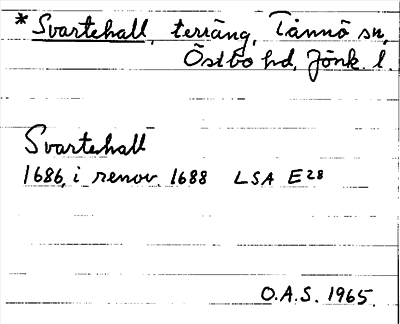 * Svartehall, terräng, Tånnö sn,
Östbo hd, Jönk. l.
Svartehall
1686, i renov. 1688 LSA E28
O.A.S. 1965.